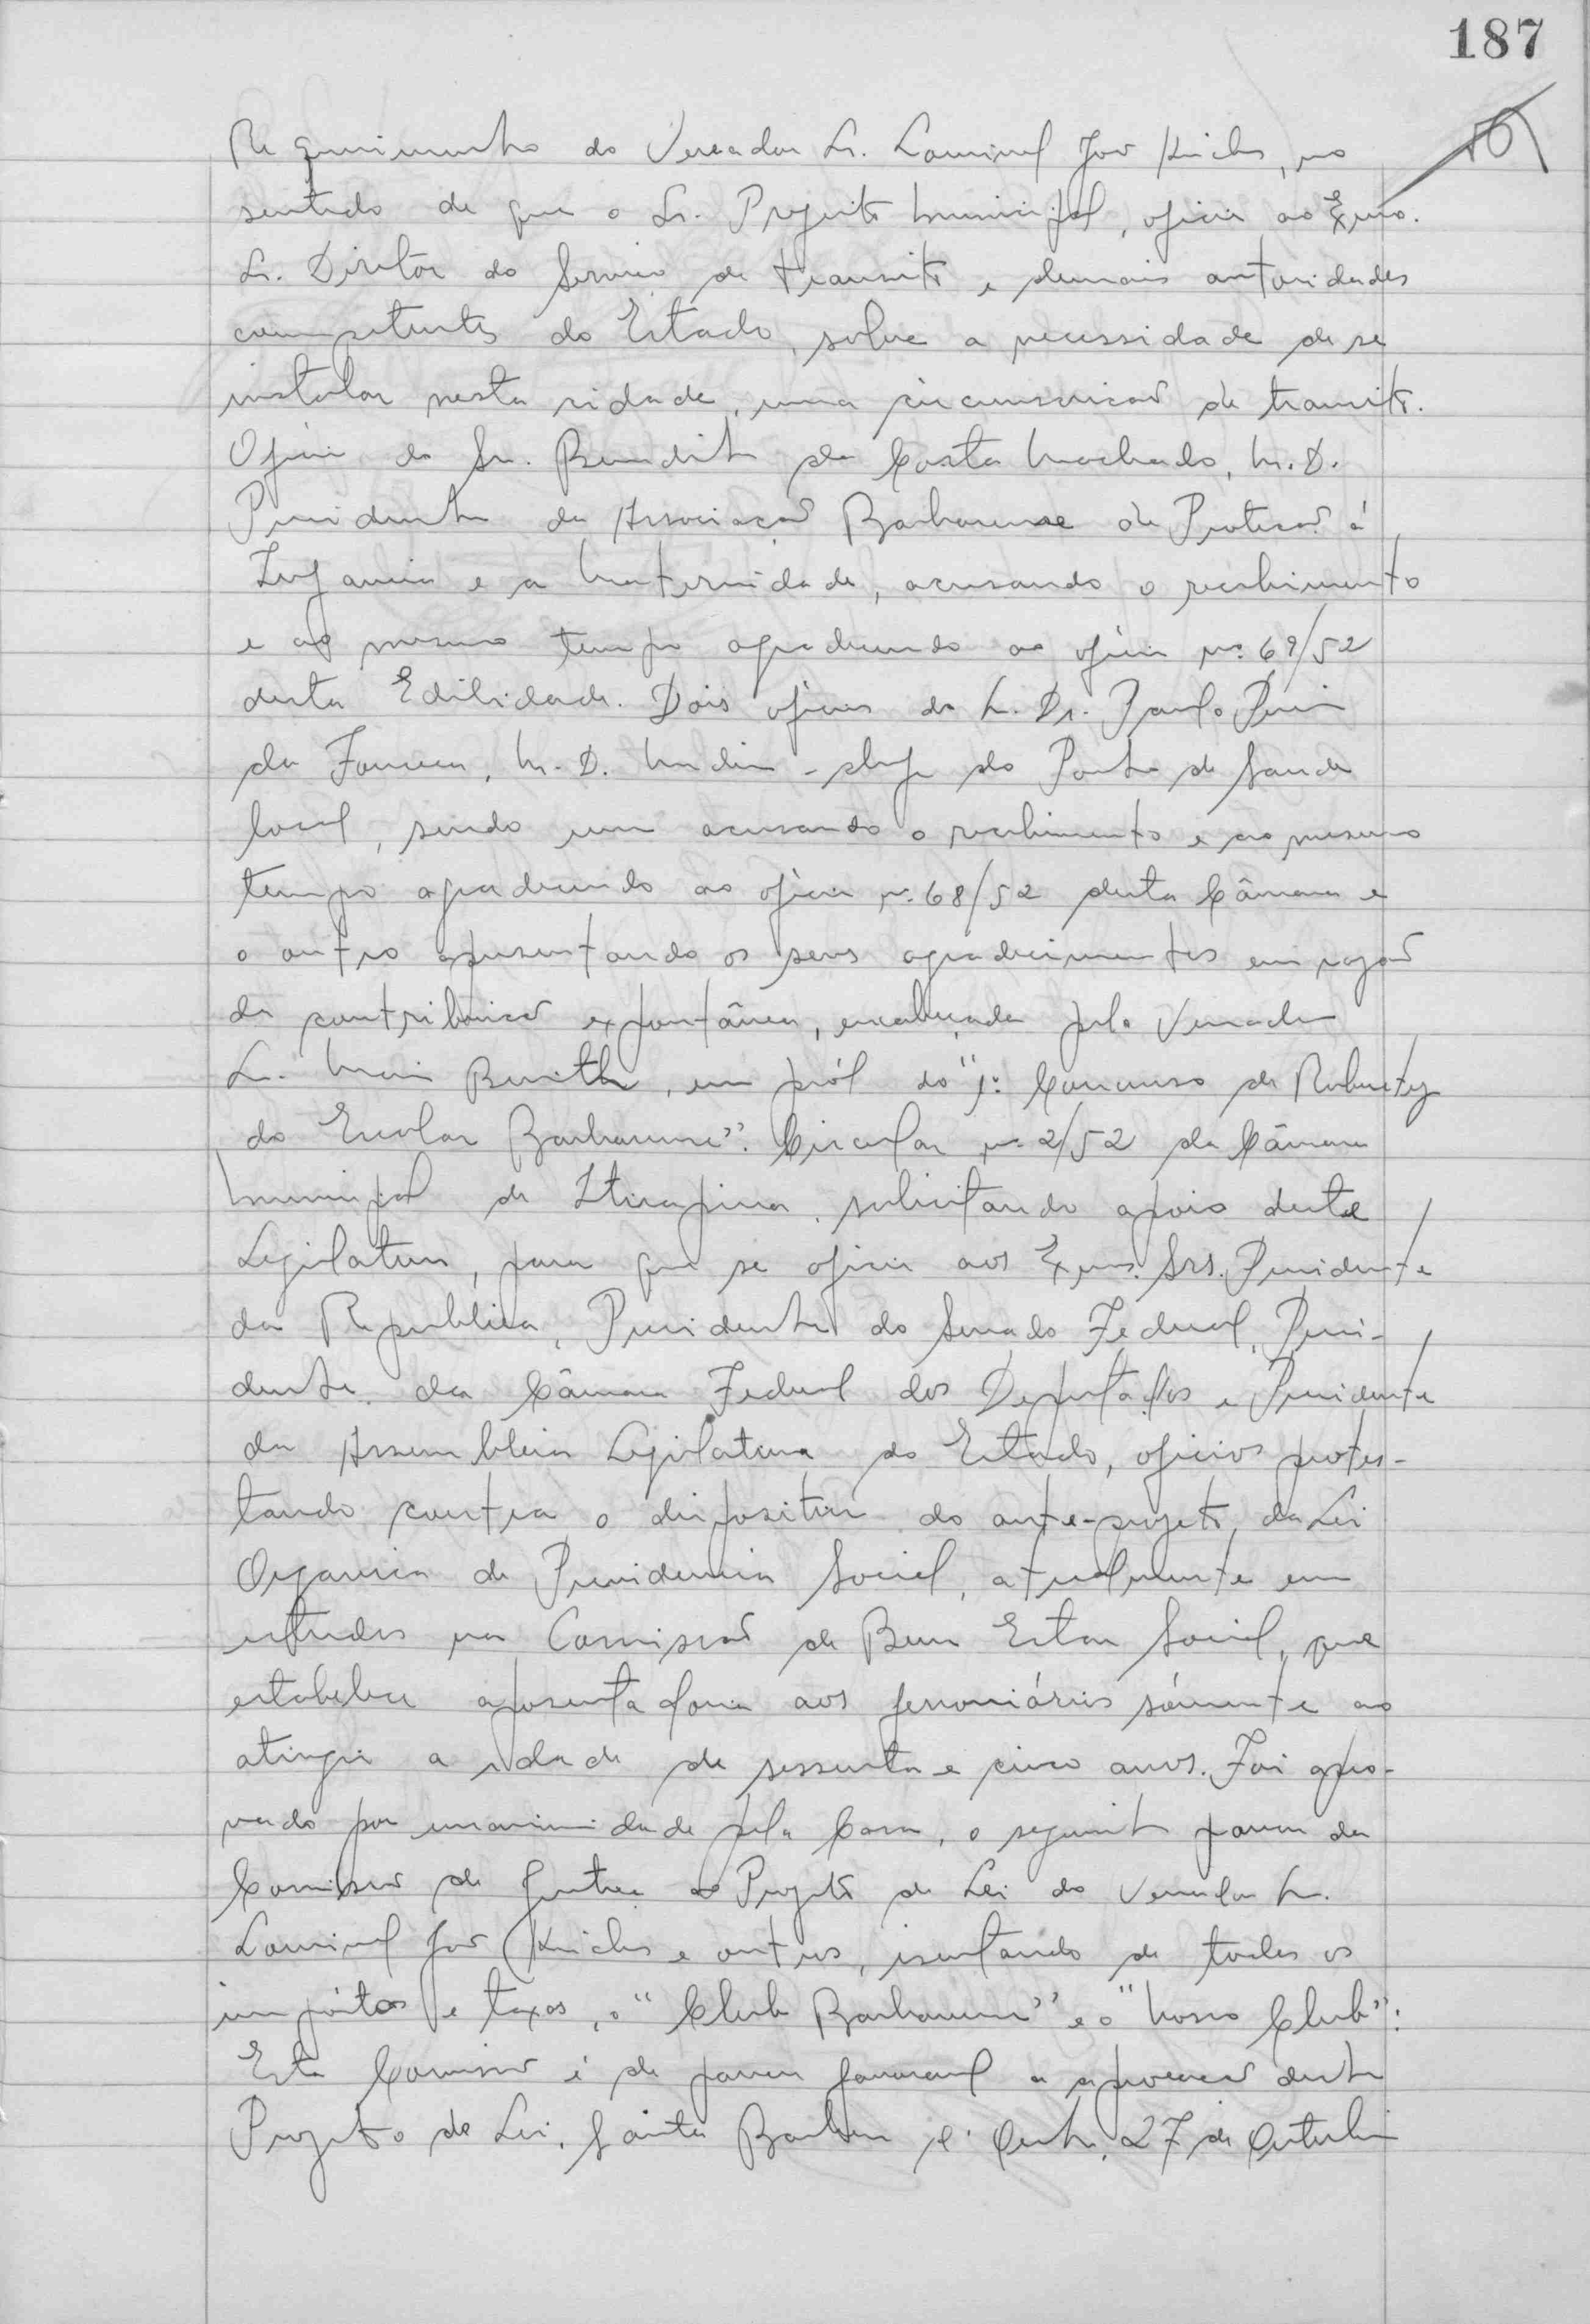 187
Requerimento do Vereador Sr. Lourival José Kuichs, no
sentido de que o Sr. Prefeito Municipal, oficie ao Exmo.
Sr. Diretor do Serviço de transito e demais autoridades
competentes do Estado, sobre a necessidade de se
instalar nesta cidade, uma circunscrição de transito.
Oficio do Sr. Benedito da Costa Machado, M.D.
Presidente da Associação Barbarense de Proteção á
Infancia e a Maternidade, acusando o recebimento
e ao mesmo tempo agradecendo ao oficio nº 69/52
desta Edilidade. Dois oficios do Sr. Dr. Paulo
da Fonseca, M.D. Medico-chefe do Posto de Saude
local, sendo um acusando o recebimento e ao mesmo
tempo agradecendo ao oficio nº 68/52 desta Câmara e
o outro apresentando os seus agradecimentos em razão
da contribuição expontânea, encabeçada pelo Vereador
Sr. em pról do "1º Concurso de Robustez
do Escolar Barbarense". Circular nº 2/52 da Câmara
Municipal de Itirapina, solicitando apoio deste
Legislativo, para que se oficie aos Exmos. Srs. Presidente
da Republica, Presidente do Senado Federal, Presi-
dente da Câmara Federal dos Deputados e Presidente
da Assembleia Legislativa do Estado, oficios protes-
tando contra o dispositivo do ante-projeto da Lei
Organica de Previdencia Social, atualmente em
estudos na Comissão de Bem Estar Social, que
estabelece aposentadoria aos ferroviários sómente ao
atingir a idade de sessenta e cinco anos. Foi apro-
vado por unanimidade pela Casa, o seguinte parecer da
Comissão de Justiça ao Projeto de Lei do Vereador Sr.
Lourival José Kuichs e outros, isentando de todos os
impóstos e taxas, o "Club Barbarense" e o "Nosso Club":
Esta Comissão é de parecer favoravel a aprovação deste
Projeto de Lei. Santa Barbara d'Oeste, 27 de Outubro